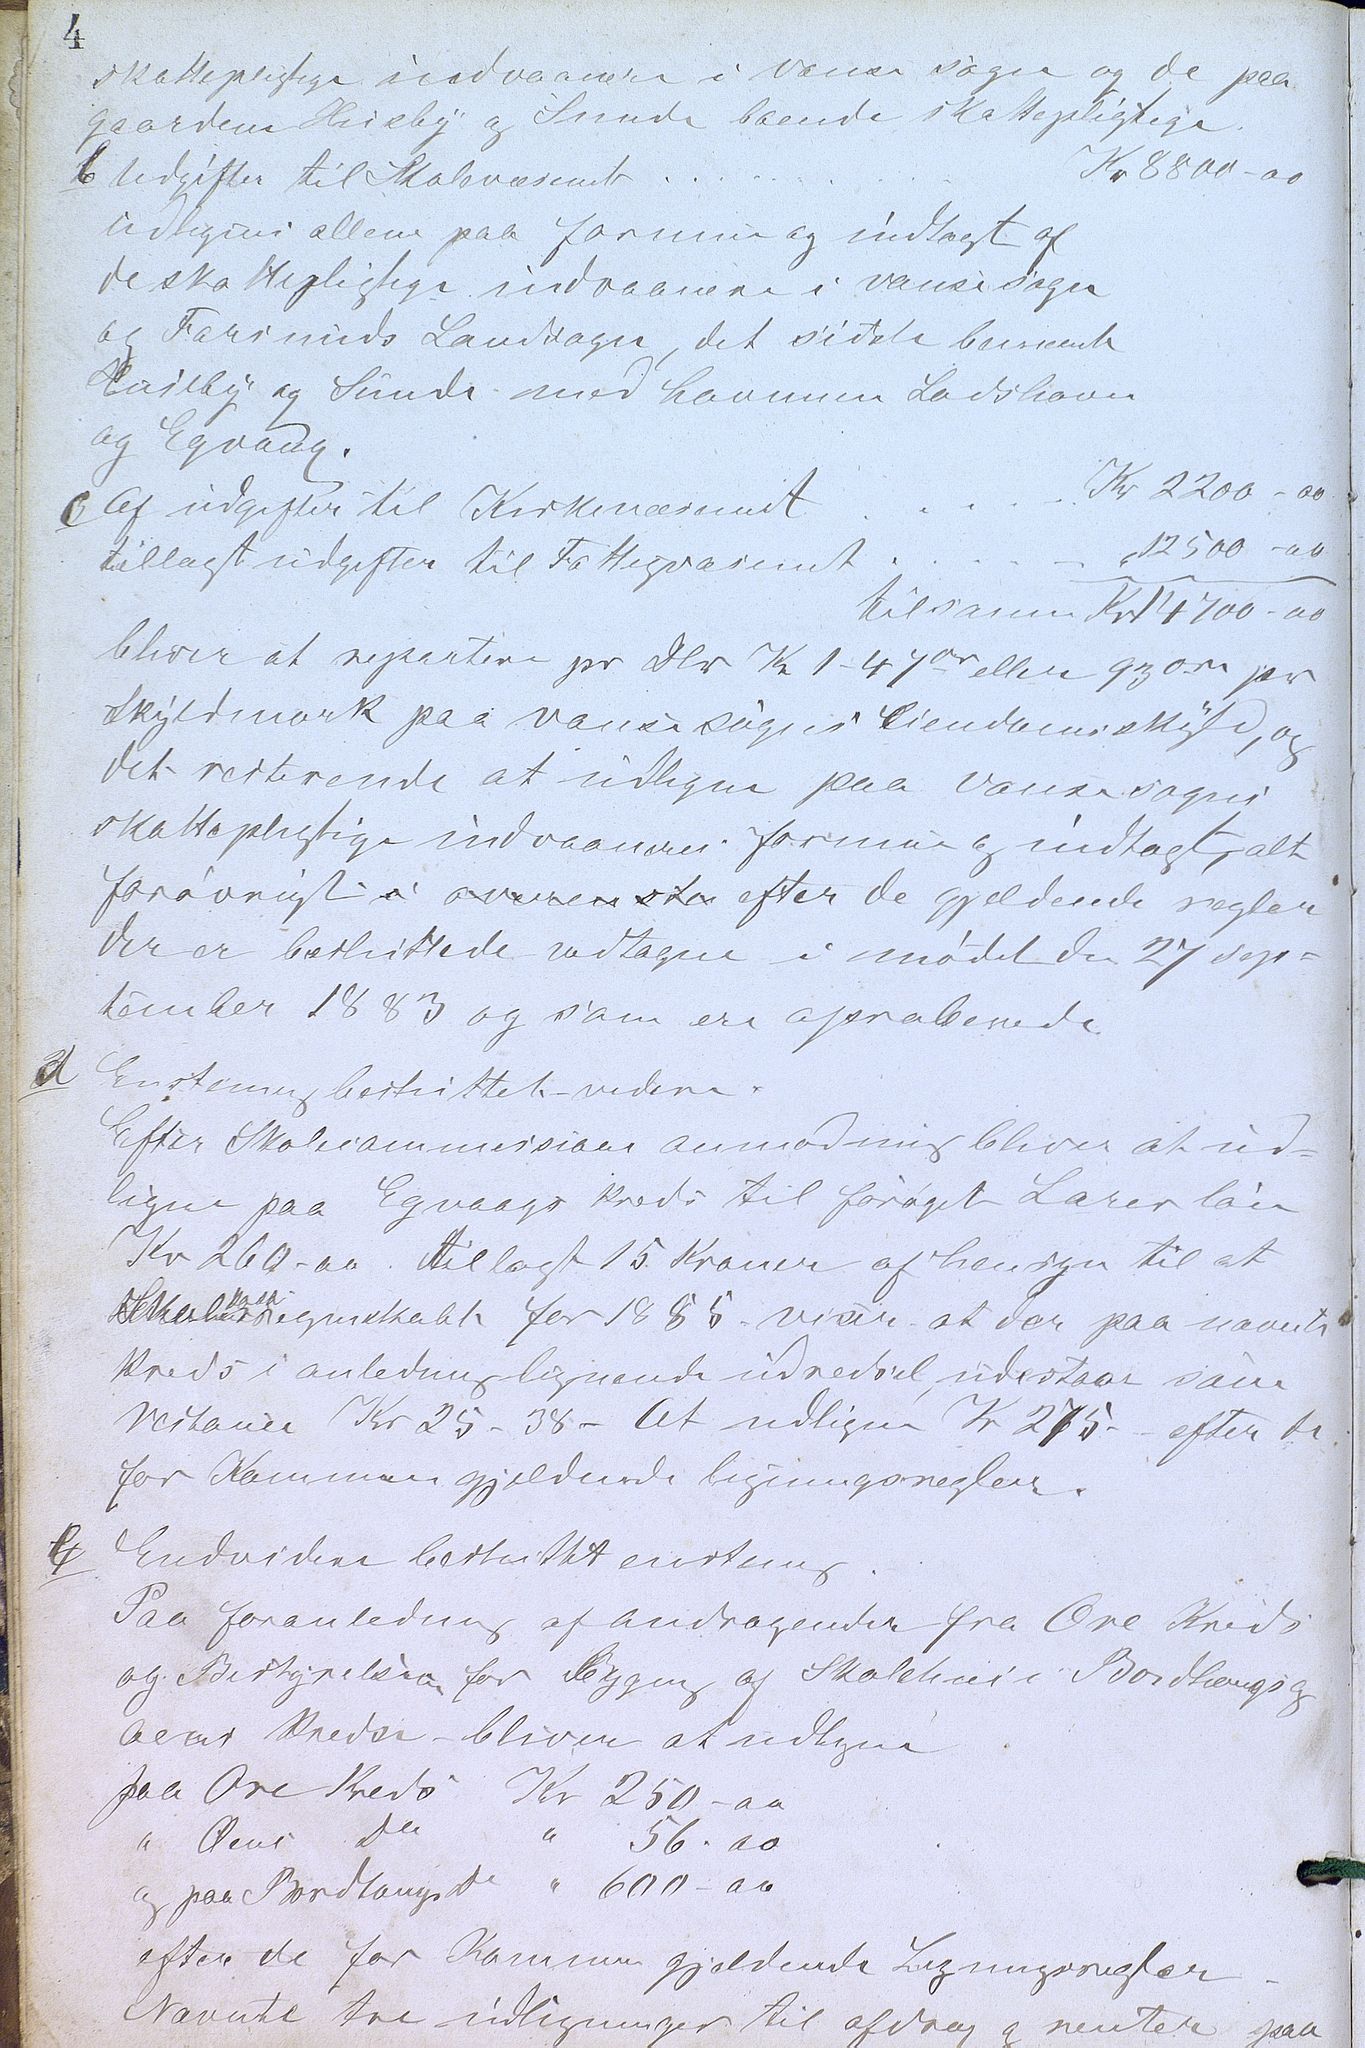 4
skattepligtige indvaanere i Vanse sogn og de paa
gaardene Huseby og Sunde boende skattepligtige.
b Udgifter til Skolevæsenet . . . . . . . . . Kr 8800-00
udlignes allene paa formue og indtægt af
de skattepligtige indvaanere i Vanse sogn
og Farsunds Landsogn, det sidste benævnte
Huseby og Sunde med havnene Lodshavn
og Egvaag.
c Af udgifter til Kirkevæsenet . . . . . Kr 2200-00
tillagt udgifter til Fattigvæsenet . . . . . " 12500-00
tilsamm Kr 14700-00
bliver at repartere pr Dlr Kr 1-47 ør eller 93 øre pr
Skyldmark paa Vanse sogns Eiendomsskyld, og
det resterende at udligne paa Vanse sogns
skattepligtige indvaaneres formue og indtægt, alt
forøvrigt i overensste efter de gjeldende regler
der er besluttede vedtagne i mødet den 27 sep-
tember 1883 og som ere aproberede
d Enstemig besluttet videre.
Efter Skolecommissionens anmodning bliver at ud-
ligne paa Egvaags Kreds til forøget Lærer løn
Kr 260-00 tillagt 15 Kroner af hensyn til at
regnskabet for 1885 viser at der paa nævnte
Kreds i anledning lignende udredsel, udestaar som
restancer Kr 25-38- At udligne Kr 275- efter de
for Kommunen gjeldende ligningsregler.
e Endvidere besluttet enstemig.
Paa foranledning af andragender fra Ore Kreds
og Bestyrelsen for Bygning af Skolehus i Bordhaugs og
Øens Kredse bliver at udligne
paa Ore Kreds Kr 250-00
" Øens Do " 56-00
og paa Bordhaugs Do " 600-00
efter de for Kommunen gjeldende Ligningsregler -
Nævnte tre udligninger til afdrag og renter paa